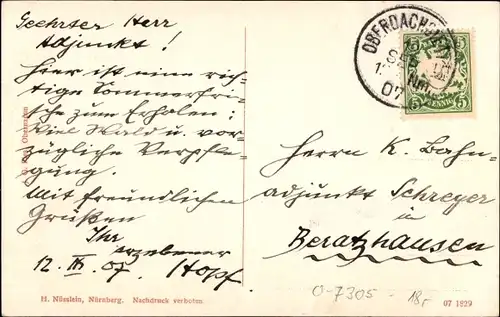 Geehrter Herr
Adjunkt!
Hier ist eine rich-
tige Sommerfri-
sche zum Erholen:
Viel Wald u. vor-
zügliche Verpfle-
gung.
Mit freundlichen
Grüßen
Ihr
ergebener
12. IX. 07. Hopf
H. Nüsslein, Nürnberg. Nachdruck verboten.
OBERDACHSTETTEN
SEP
07
5 5
PFENNIG
5 5
Herrn K. Bahn-
adjunkt Schreyer
in
Beratzhausen
0-7305 - 18,-
07 1829